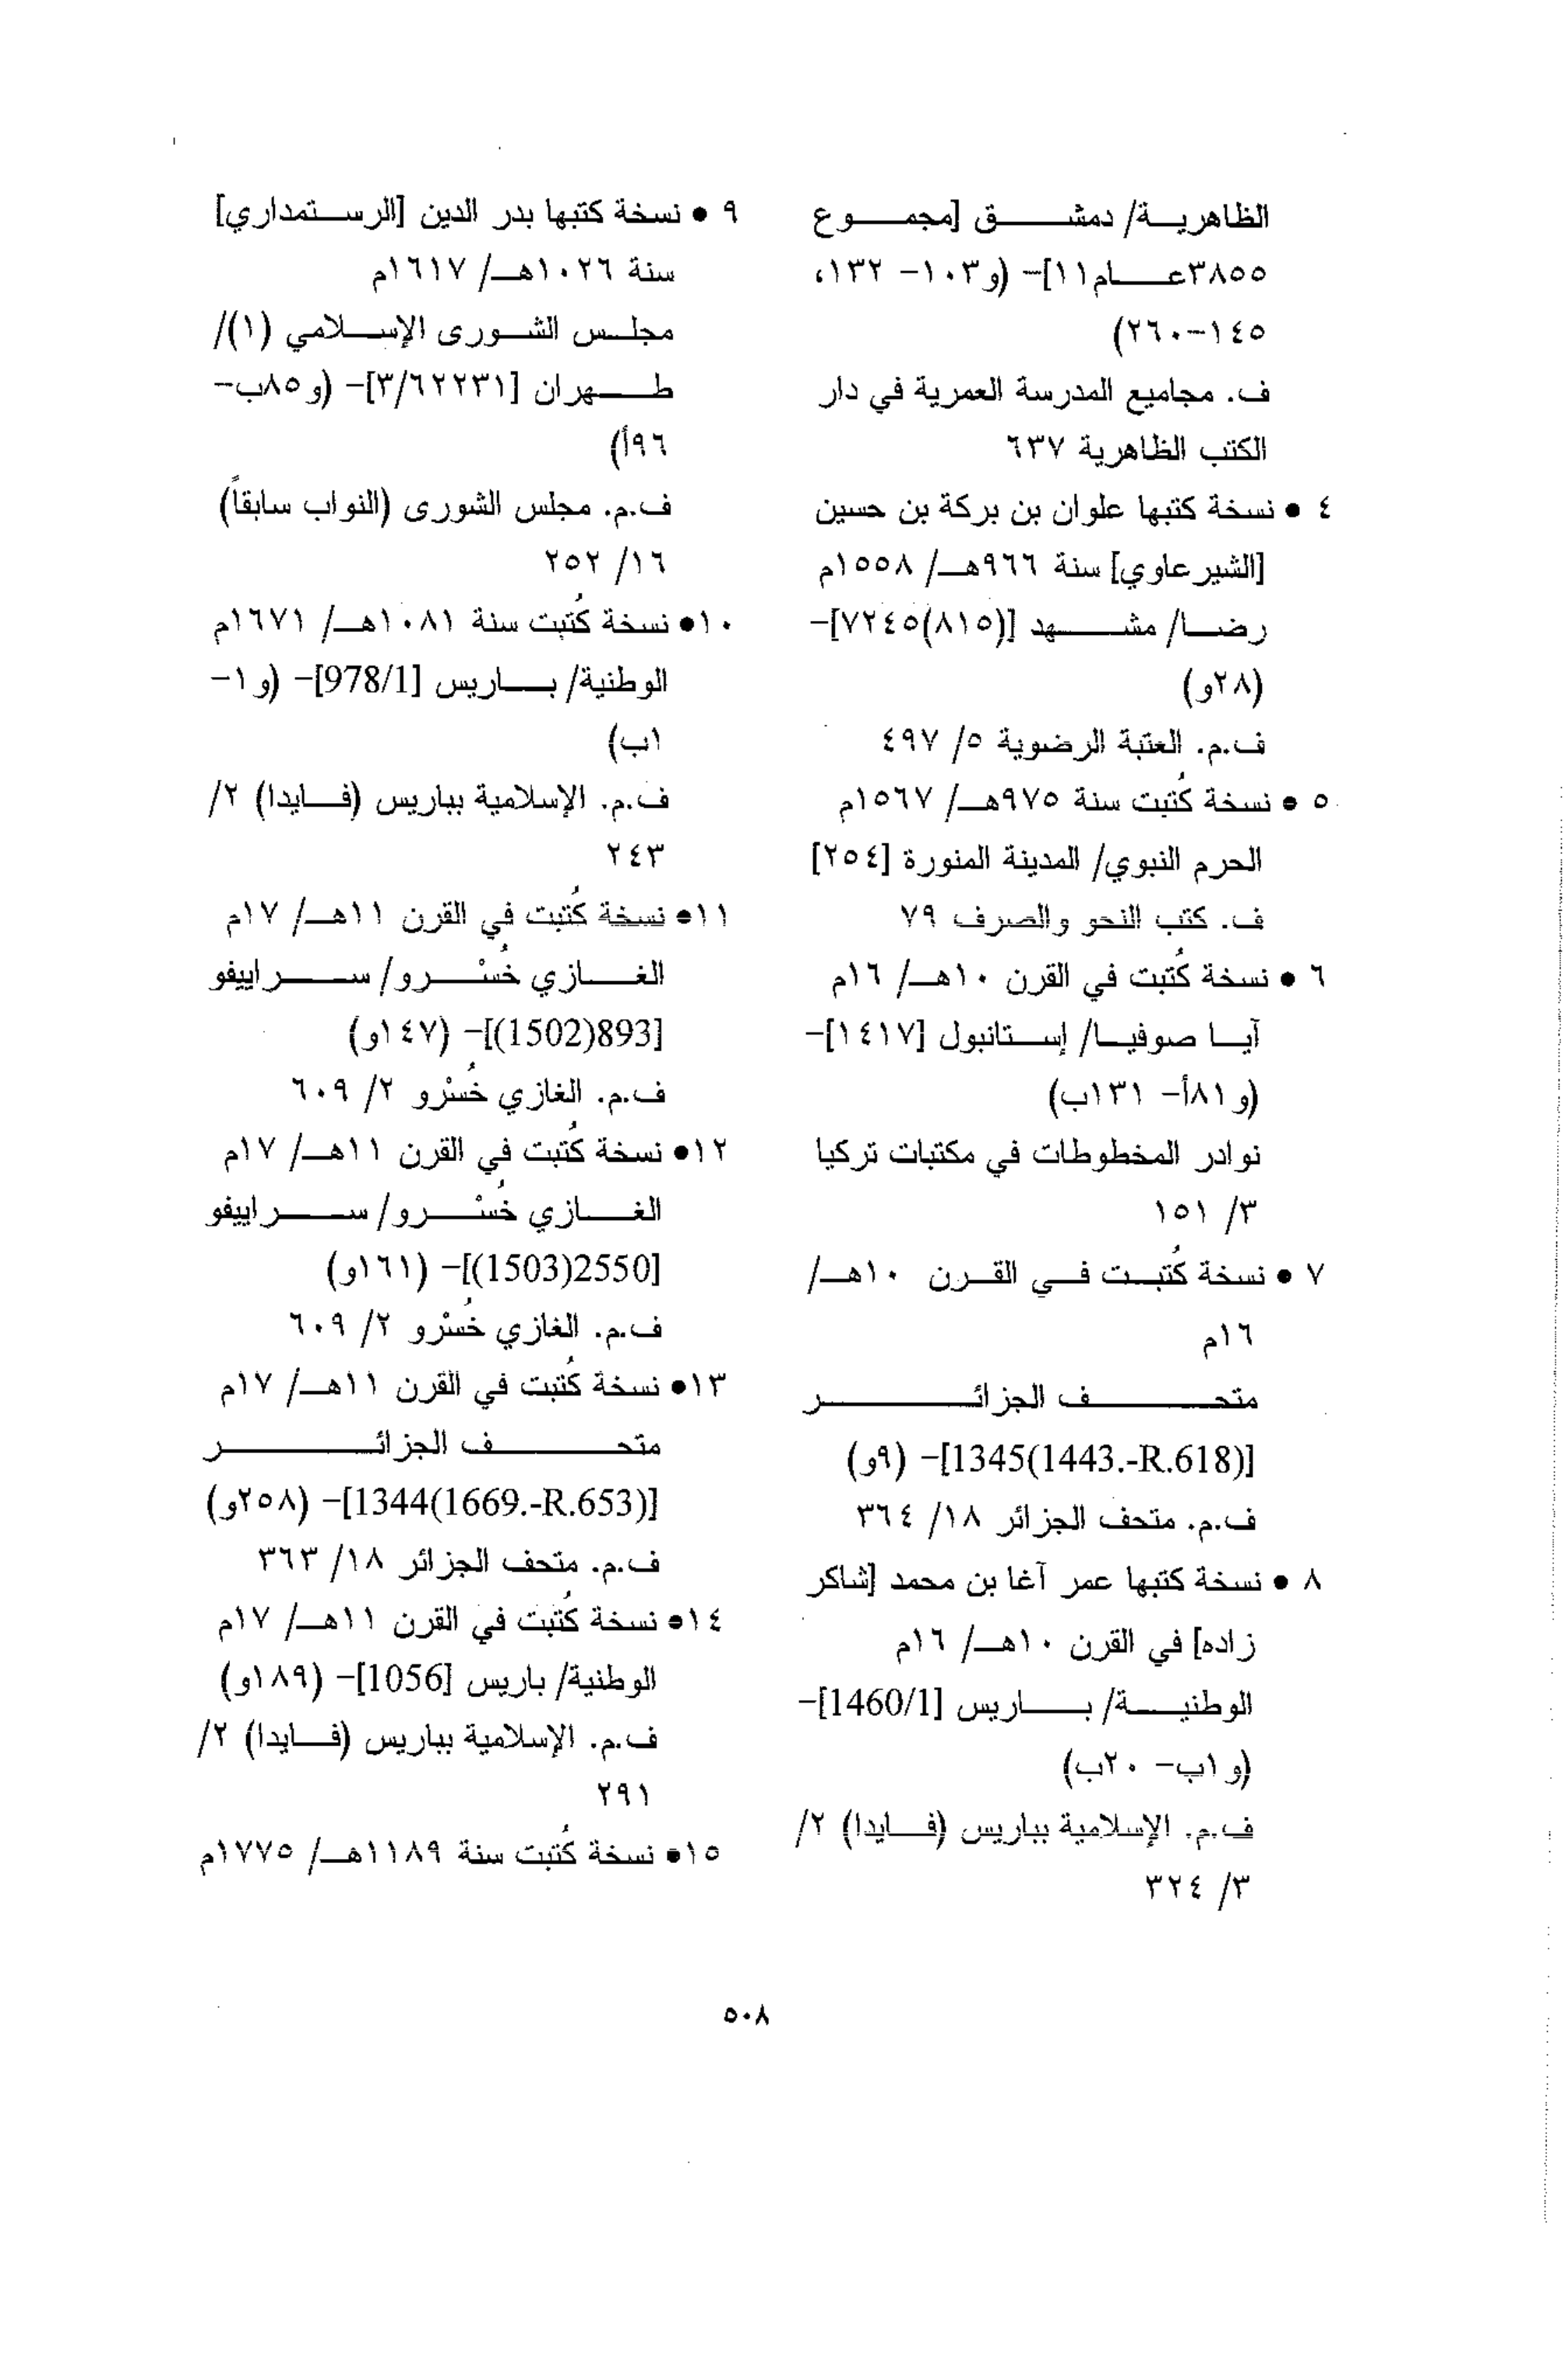 الظاهرية/ دمشق [مجموع
٣٨٥٥عام١١]- (و١٠٣- ١٣٢،
١٤٥-٢٦٠)
ف. مجاميع المدرسة العمرية في دار
الكتب الظاهرية ٦٣٧
٤ • نسخة كتبها علوان بن بركة بن حسين
[الشيرعاوي] سنة ٩٦٦هـ/ ١٥٥٨م
رضا/ مشهد [(٨١٥)٧٢٤٥]-
(٢٨و)
ف.م. العتبة الرضوية ٥/ ٤٩٧
٥ • نسخة كُتبت سنة ٩٧٥هـ/ ١٥٦٧م
الحرم النبوي/ المدينة المنورة [٢٥٤]
ف. كتب النحو والصرف ٧٩
٦ • نسخة كُتبت في القرن ١٠هـ/ ١٦م
آيا صوفيا/ إستانبول [١٤١٧]-
(و٨١أ- ١٣١ب)
نوادر المخطوطات في مكتبات تركيا
٣/ ١٥١
٧ • نسخة كُتبت في القرن ١٠هـ/
١٦م
متحف الجزائر
[1345(1443.-R.618)]- (٩و)
ف.م. متحف الجزائر ١٨/ ٣٦٤
٨ • نسخة كتبها عمر آغا بن محمد [شاكر
زاده] في القرن ١٠هـ/ ١٦م
الوطنية/ باريس [1460/1]-
(و١ب- ٢٠ب)
ف.م. الإسلامية بباريس (فايدا) ٢/
٣/ ٣٢٤
٩ • نسخة كتبها بدر الدين [الرستمداري]
سنة ١٠٢٦هـ/ ١٦١٧م
مجلس الشورى الإسلامي (١)/
طهران [٣/٦٢٢٣١]- (و٨٥ب-
٩٦أ)
ف.م. مجلس الشورى (النواب سابقاً)
١٦/ ٢٥٢
١٠• نسخة كُتبت سنة ١٠٨١هـ/ ١٦٧١م
الوطنية/ باريس [978/1]- (و١-
١ب)
ف.م. الإسلامية بباريس (فايدا) ٢/
٢٤٣
١١• نسخة كُتبت في القرن ١١هـ/ ١٧م
الغازي خُسْرو/ سراييفو
[893(1502)]- (١٤٧و)
ف.م. الغازي خُسْرو ٢/ ٦٠٩
١٢• نسخة كُتبت في القرن ١١هـ/ ١٧م
الغازي خُسْرو/ سراييفو
[2550(1503)]- (١٦١و)
ف.م. الغازي خُسْرو ٢/ ٦٠٩
١٣• نسخة كُتبت في القرن ١١هـ/ ١٧م
متحف الجزائر
[1344(1669.-R.653)]- (٢٥٨و)
ف.م. متحف الجزائر ١٨/ ٣٦٣
١٤• نسخة كُتبت في القرن ١١هـ/ ١٧م
الوطنية/ باريس [1056]- (١٨٩و)
ف.م. الإسلامية بباريس (فايدا) ٢/
٢٩١
١٥• نسخة كُتبت سنة ١١٨٩هـ/ ١٧٧٥م
٥٠٨